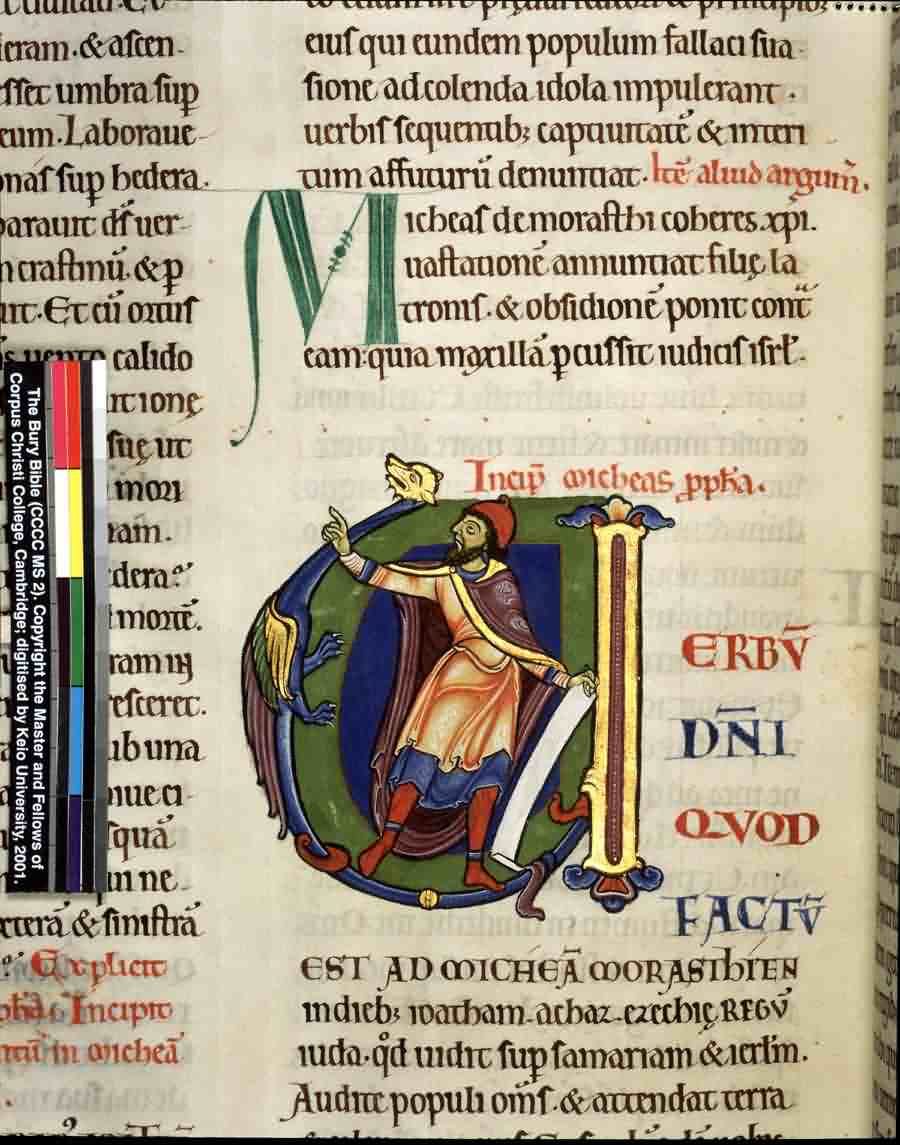 ieram. & ascen-
sset umbra sup
eum. Laboraue-
nas sup hedera.
parauit ds uer-
n crastinū. & p
it. Et cū ortus
uento calido
suę ut
mori
am.
edera?
mortē.
resceret.
ub una
nueci-
squā
un ne
xterā & sinistrā
Explicit
Incipit
in micheā
eius qui eundem populum fallaci sua-
sione ad colenda idola impulerant.
uerbis sequentib; captiuitatē & interi
tum affuturū denuntiat. Itē aliud argum̄.
Micheas de morasthi coheres xp̄i.
uastationē annuntiat filię la
tronis. & obsidionē ponit cont
eam: quia maxillā pcussit iudicis isrl̄.
Incip̄ micheas ppha.
ERBV̄
DN̄I
QVOD
FACTV̄
EST AD MICHEĀ MORASThIEN
in dieb; ioatham. achaz. ezechię REGV̄
iuda. qd uidit sup samariam & ierl̄m.
Audite populi om̄s. & attendat terra
The Bury Bible (CCCC MS 2). Copyright the Master and Fellows of
Corpus Christi College, Cambridge; digitised by Keio University, 2001.